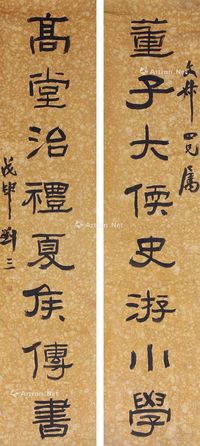 董子大儒史游小學
文叔四兄屬
高堂治禮夏侯傳書
戊申劉三